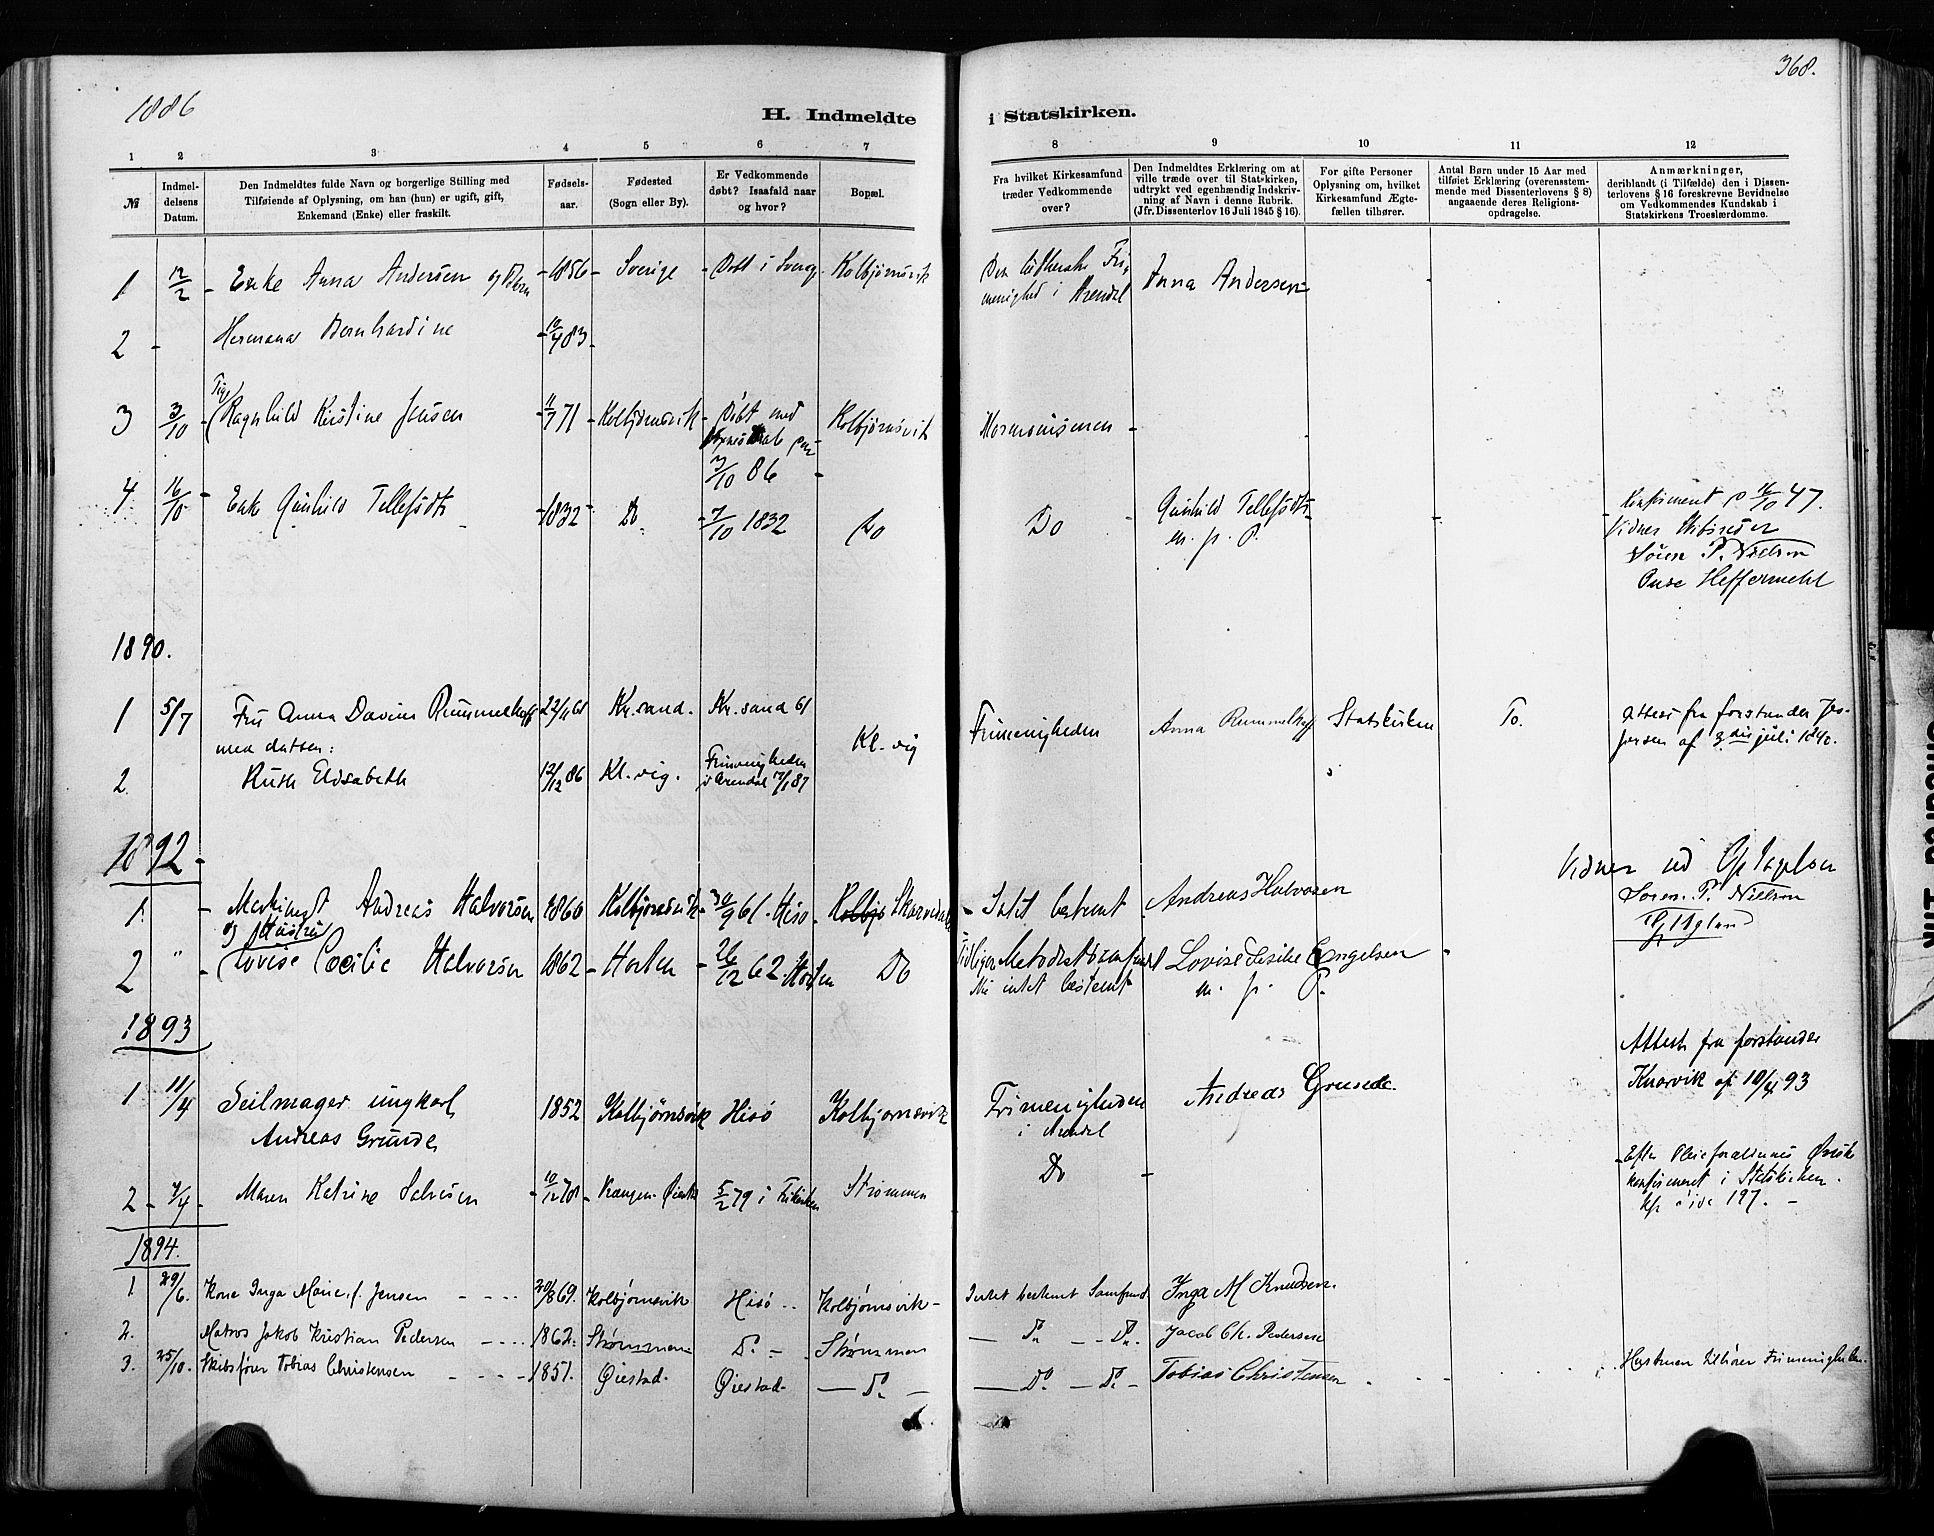 368.
1886
H. Indmeldte i Statskirken.
1 2 3 4 5 6 7 8 9 10 11 12
№
Indmel-
delsens
Datum.
Den Indmeldtes fulde Navn og borgerlige Stilling med
Tilføiende af Oplysning, om han (hun) er ugift, gift,
Enkemand (Enke) eller fraskilt.
Fødsels-
aar.
Fødested
(Sogn eller By).
Er Vedkommende
døbt? Isaafald naar
og hvor?
Bopæl.
Fra hvilket Kirkesamfund
træder Vedkommende
over?
Den Indmeldtes Erklæring om at
ville træde over til Statskirken,
udtrykt ved egenhændig Indskriv-
ning af Navn i denne Rubrik.
(Jfr. Dissenterlov 16 Juli 1845 § 16).
For gifte Personer
Oplysning om, hvilket
Kirkesamfund Ægte-
fællen tilhører.
Antal Børn under 15 Aar med
tilføiet Erklæring (overensstem-
mende med Dissenterlovens § 8)
angaaende deres Religions-
opdragelse.
Anmærkninger,
deriblandt (i Tilfælde) den i Dissen-
terlovens § 16 foreskrevne Bevidnelse
om Vedkommendes Kundskab i
Statskirkens Troeslærdomme.
1 12/2 - Enke Anna Andersen og Børn - 1856 - Sverige - Døbt i Sverig - Kolbjørnsvik Den lutherske Fri-
menighed i Arendal Anna Andersen
2 - Hermana Bernhardine - 10/4 83 -
3 3/10 - Pige Ragnhild Kirstine Jensen - 11/7 71 - Kolbjørnsvik - Døbt med
3/10 86 Kolbjørnsvik Mormonismen -
4 16/10 - Enk Gunhild Tellefsdtr - 1832 - Do - 7/10 1832 Do Do - Gunhild Tellefsdtr
m. p. P.
Konfirment 16/10 47.
Vidner
Søren P. Nielsen
Heffermehl
1890.
1 5/7 Fru Anna Davine Rummelhoff 22/11 61 Kr.sand. Kr.sand 61 Kl.vig Frimenigheden Anna Rummelhoff Statskirken To. Attest fra forstander
af 3die juli 1890.
med datter:
2. Ruth Elisabeth 12/12 86 Kl.vig. Frimenigheden
i Arendal 87
1892 -
1. - Andreas Halvorsen 1860 Kolbjørnsvik - 30/9 61. Hisø - - Intet bestemt Andreas Halvorsen
Vidner ved Optagelsen
Søren P. Nielsen
og Hustru
2 " - Lovise Cecilie Halvorsen 1862 - Horten - 26/12 62. Horten Do Tidligere Metodistsamfund
Nu intet bestemt Lovise Engelsen -
m. p. P.
1893
1 11/4 Seilmager ungkarl
Andreas Grunde 1852 Kolbjørnsvik Hisö Kolbjørnsvik Frimenigheden
i Arendal Andreas Grunde.
Attest fra forstander
Knarvik af 10/4 93
2 - 4/4 - Maren Katrine Salvesen - 10/12 78 - Øiestad 5/2 79 i Frikirken Strømmen Do - - Efter Pleieforældrenes Ønske
konfirmeret i Statskirken.
197. -
1894.
1. 29/6. Kone Inga Marie, f. Jensen - - - - 20/8 69. Kolbjørnsvik Hisö .. Kolbjørnsvik - Intet bestemt Samfund Inga M Knudsen.
2. Matros Jakob Kristian Pedersen - - . . . 1862. Strømmen Do. - Strømmen — Do. — Do. Jacob Ch. Pedersen
3. 25/10. Skibsfører Tobias Christensen - - - - 1851. Øiestad. Øiestad. — Do. — — Do. — Do. - Tobias Christensen Hustruen tilhører Frimenigheden.